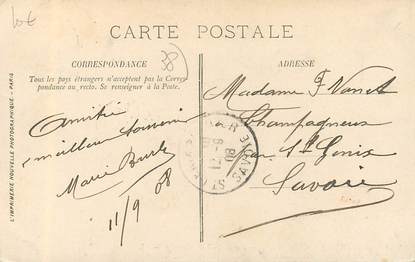 10€
CARTE POSTALE
38
CORRESPONDANCE
Tous les pays étrangers n'acceptent pas la Correspondance au recto. Se renseigner à la Poste.
ADRESSE
Amitié
meilleur souvenir
Marie
11/9 08
Madame F
Champagneux
par St Genix
Savoie
SAVOIE
08
L'IMPRIMERIE NOUVELLE PHOTOGRAPHIQUE - PARIS